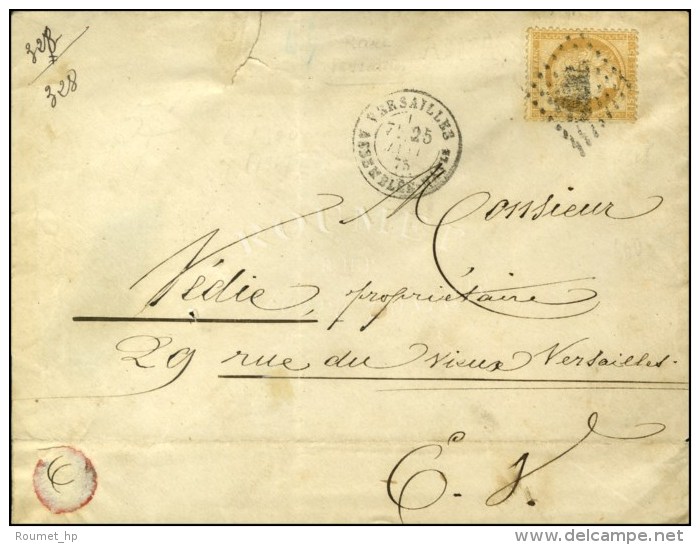 328
328
VERSAILLES
25
75
ASSEMBLÉE NATLE
Monsieur
Védie, propriétaire
29 rue du vieux Versailles.
E. V.
ROUMET
Roumet_hp
delcampe.net